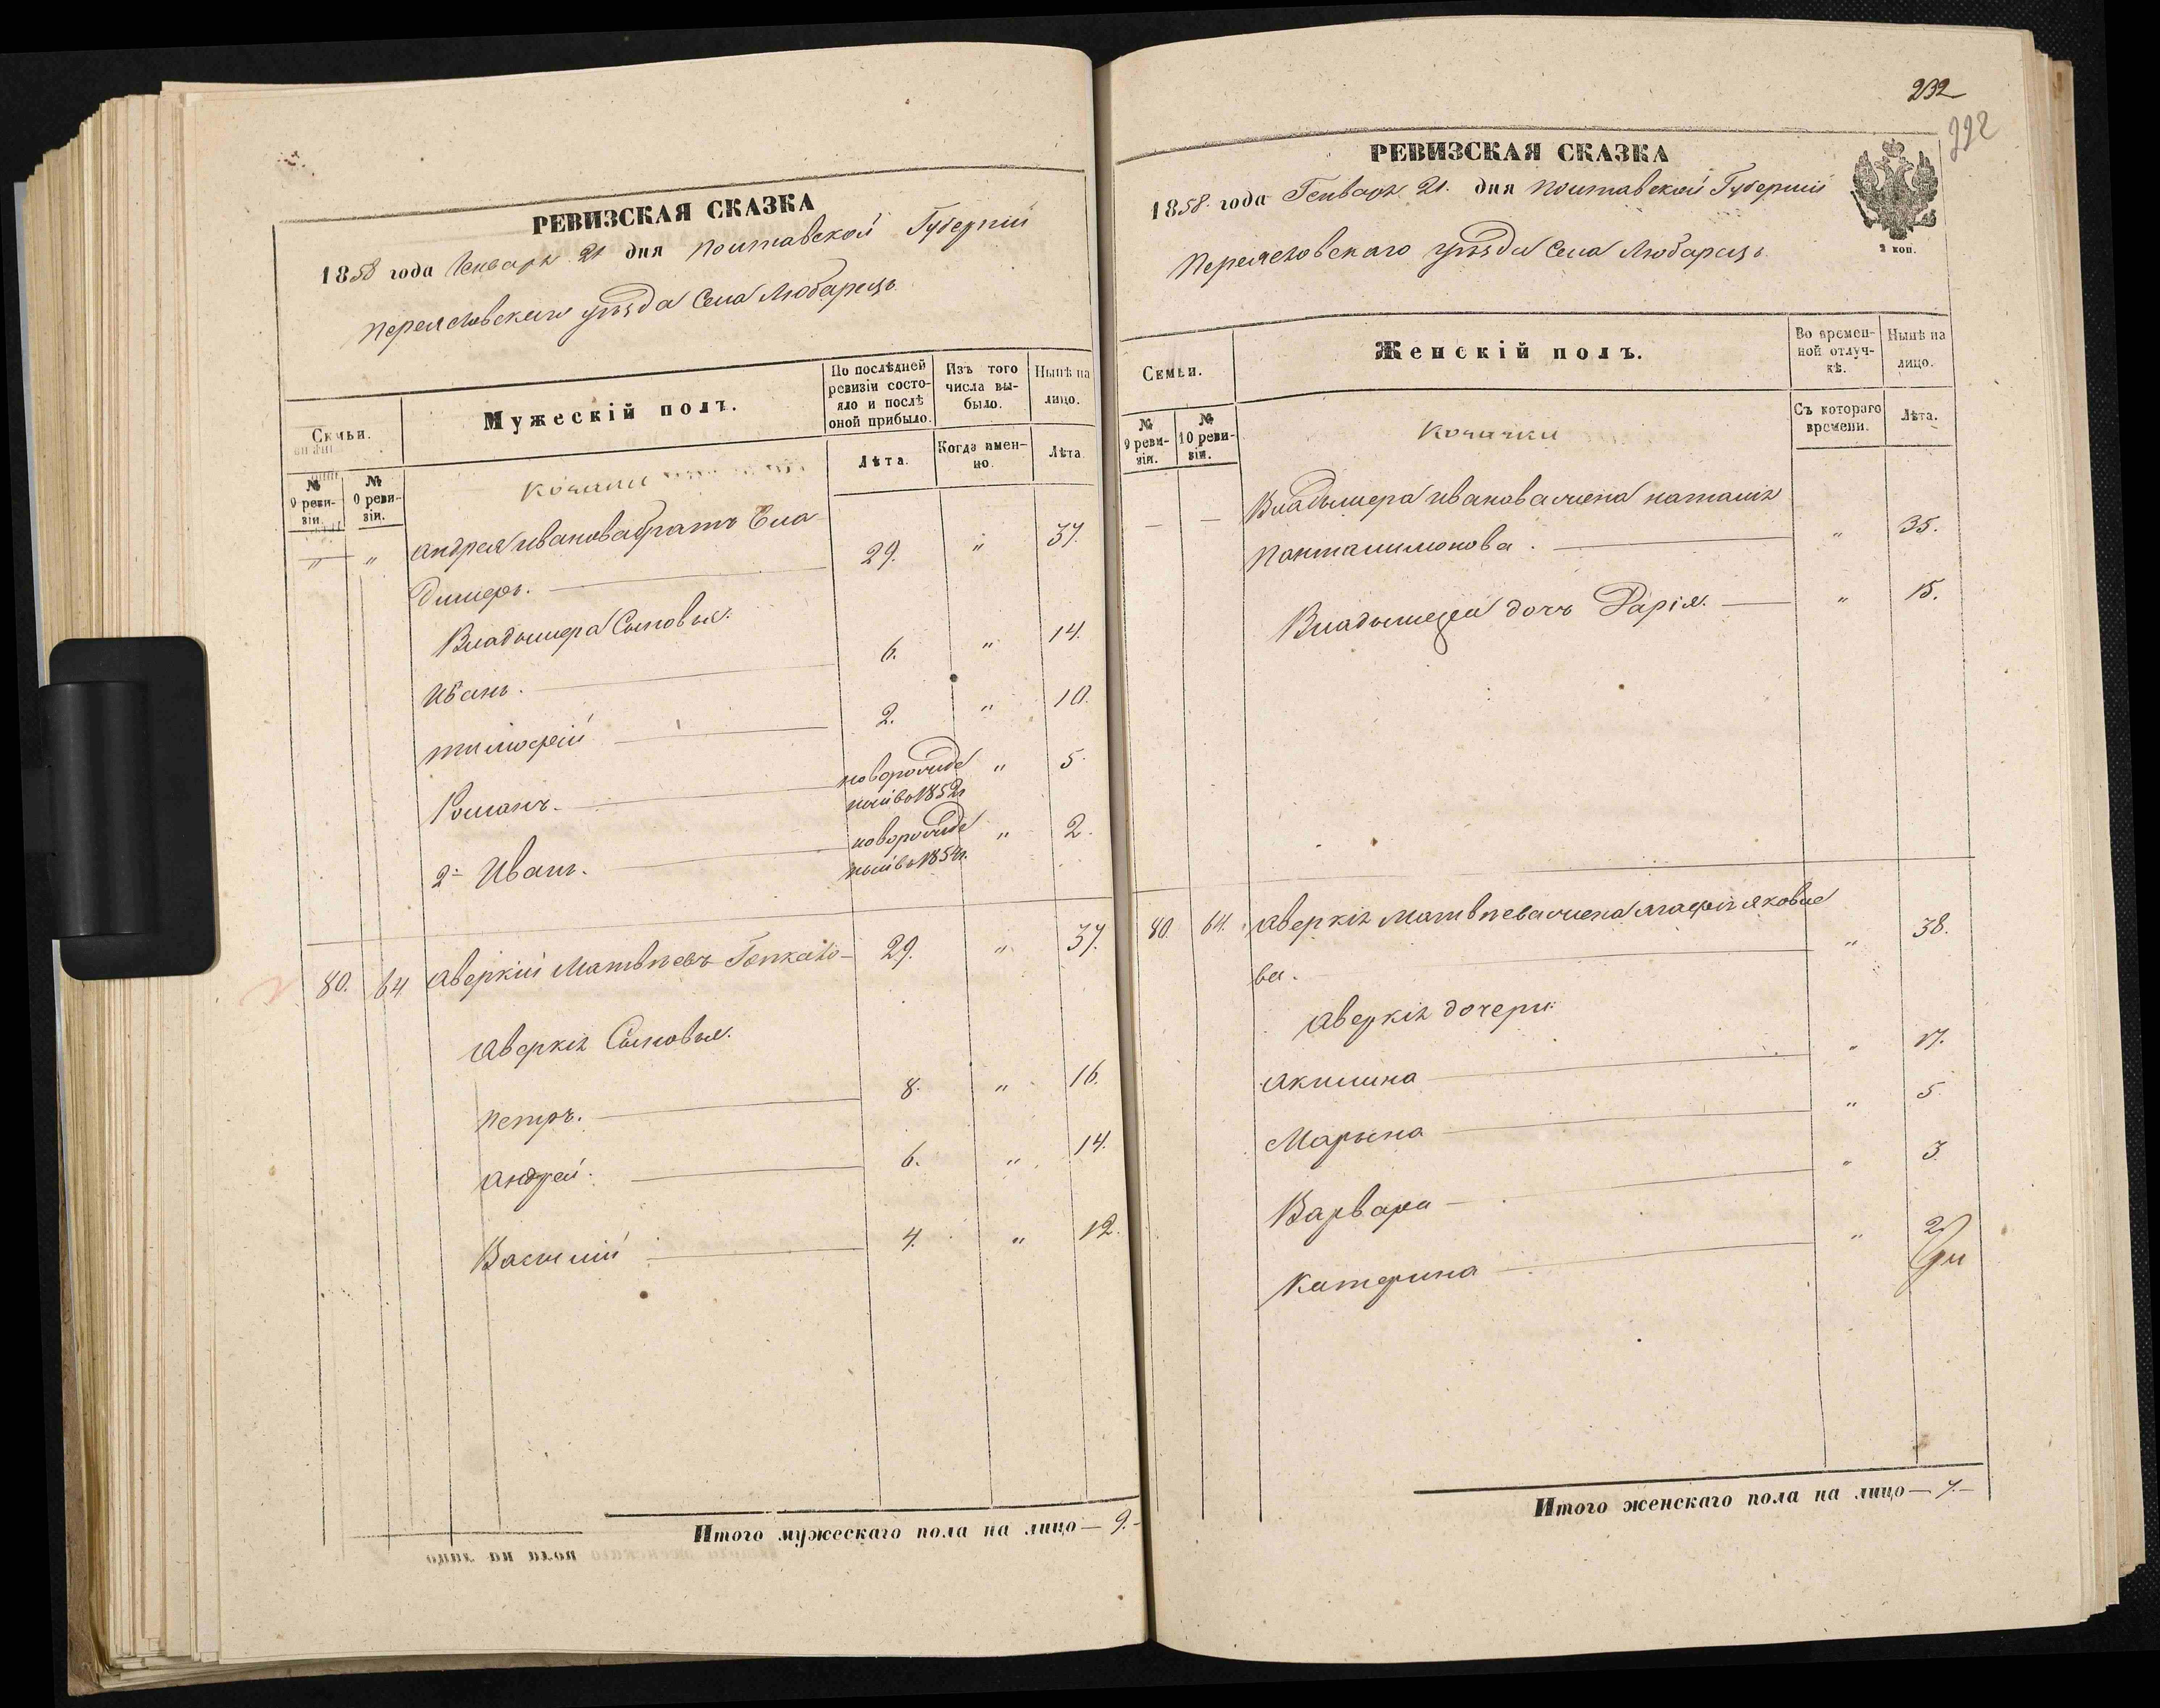 РЕВИЗСКАЯ СКАЗКА
1858 года Генваря 21 дня Полтавской Губерніи
Переясловскаго уѣзда Села Любарецъ
Семьи.
Мужескій полъ.
По послѣдней ревизіи состояло и послѣ оной прибыло.
Изъ того числа выбыло.
Нынѣ на лицо.
№ 9 ревизіи.
№ 0 ревизіи.
Лѣта.
Когда именно.
Лѣта
Козаки
" " Андрея Иванова братъ Вла-
димеръ. 29. " 37.
Владымера Сыновья:
Иванъ. 6. " 14.
Тимофей 2. " 10.
Романъ. новорожде " 5.
ный въ 1852г
2й Иванъ. новорожде " 2.
ный въ 1854г.
80. 64 Аверкій Матвѣевъ 29. " 37.
Аверкія Сыновья.
Петръ. 8. " 16.
Андрей. 6. " 14.
Василій 4. " 12.
Итого мужескаго пола на лицо — 9.
232
РЕВИЗСКАЯ СКАЗКА
1858. года Генваря 21. дня Полтавской Губерніи
Переясловскаго уѣзда Села Любарецъ
2 коп.
Семьи.
Женскій полъ.
Во временной отлучкѣ.
Нынѣ на лицо.
№ 9 ревизіи.
№ 10 ревизіи.
Съ котораго времени.
Лѣта.
Козачки
— — Владымера Иванова жена Наталія
Панталимонова. " 35.
Владымера дочь Дарія. " 15.
80. 64. Аверкія Матвѣева жена Агафія Яковле
ва. " 38.
Аверкія дочери:
Акилина " 17.
Марына " 5
Варвара " 3
Катерина " 2
Итого женскаго пола на лицо — 7.—